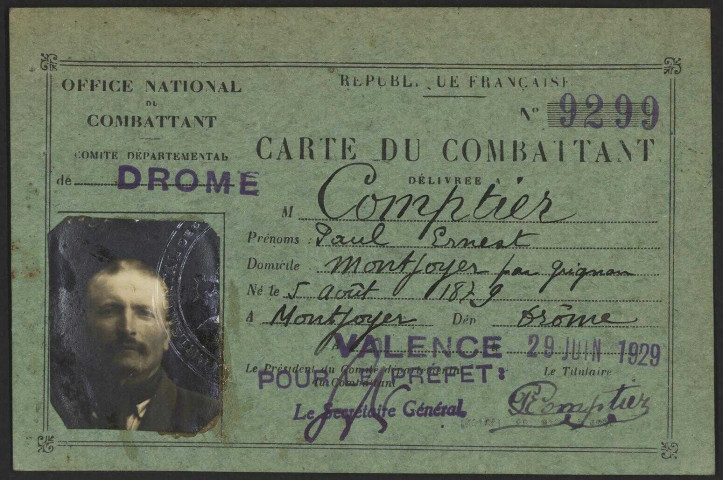 OFFICE NATIONAL
DU
COMBATTANT
COMITÉ DÉPARTEMENTAL
de DROME
RÉPUBLIQUE FRANÇAISE
N° 9299
CARTE DU COMBATTANT
DÉLIVRÉE A
M Comptier
Prénoms : Paul Ernest
Domicile Montjoyer par Grignan
Né le 5 Août 1879
A Montjoyer Dép Drôme
VALENCE 29 JUIN 1929
Le Président du Comité
POUR LE PREFET:
du Combattant
Le Titulaire
Le Secrétaire Général
PComptier